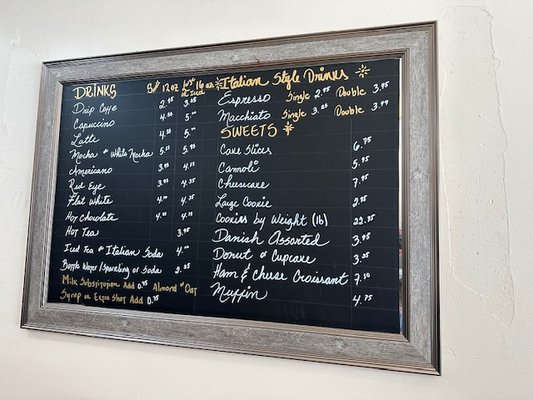 DRINKS 12 oz 16 oz
Drip Coffee 2.95 3.25
Cappuccino 4.55 5.00
Latte 4.55 5.00
Mocha White Mocha 5.15 5.75
Americano 3.95 4.25
Red Eye 3.95 4.50
Flat White 4.00 4.25
Hot Chocolate 4.00 4.25
Hot Tea 3.95
Iced Tea Italian Soda 4.00
Bottle Water/Sparkling or Soda
Milk Substitution Add 0.75 Almond Oat
Syrup or Extra Shot Add 0.75
Italian Style Drinks
Espresso Single 2.95 Double 3.95
Macchiato Single 3.25 Double 3.99
SWEETS
Cake Slices 6.75
Cannoli 5.95
Cheesecake 7.95
Large Cookie 2.95
Cookies by Weight (lb) 22.95
Danish Assorted 3.95
Donut Cupcake 3.25
Ham & Cheese Croissant 7.50
Muffin 4.75